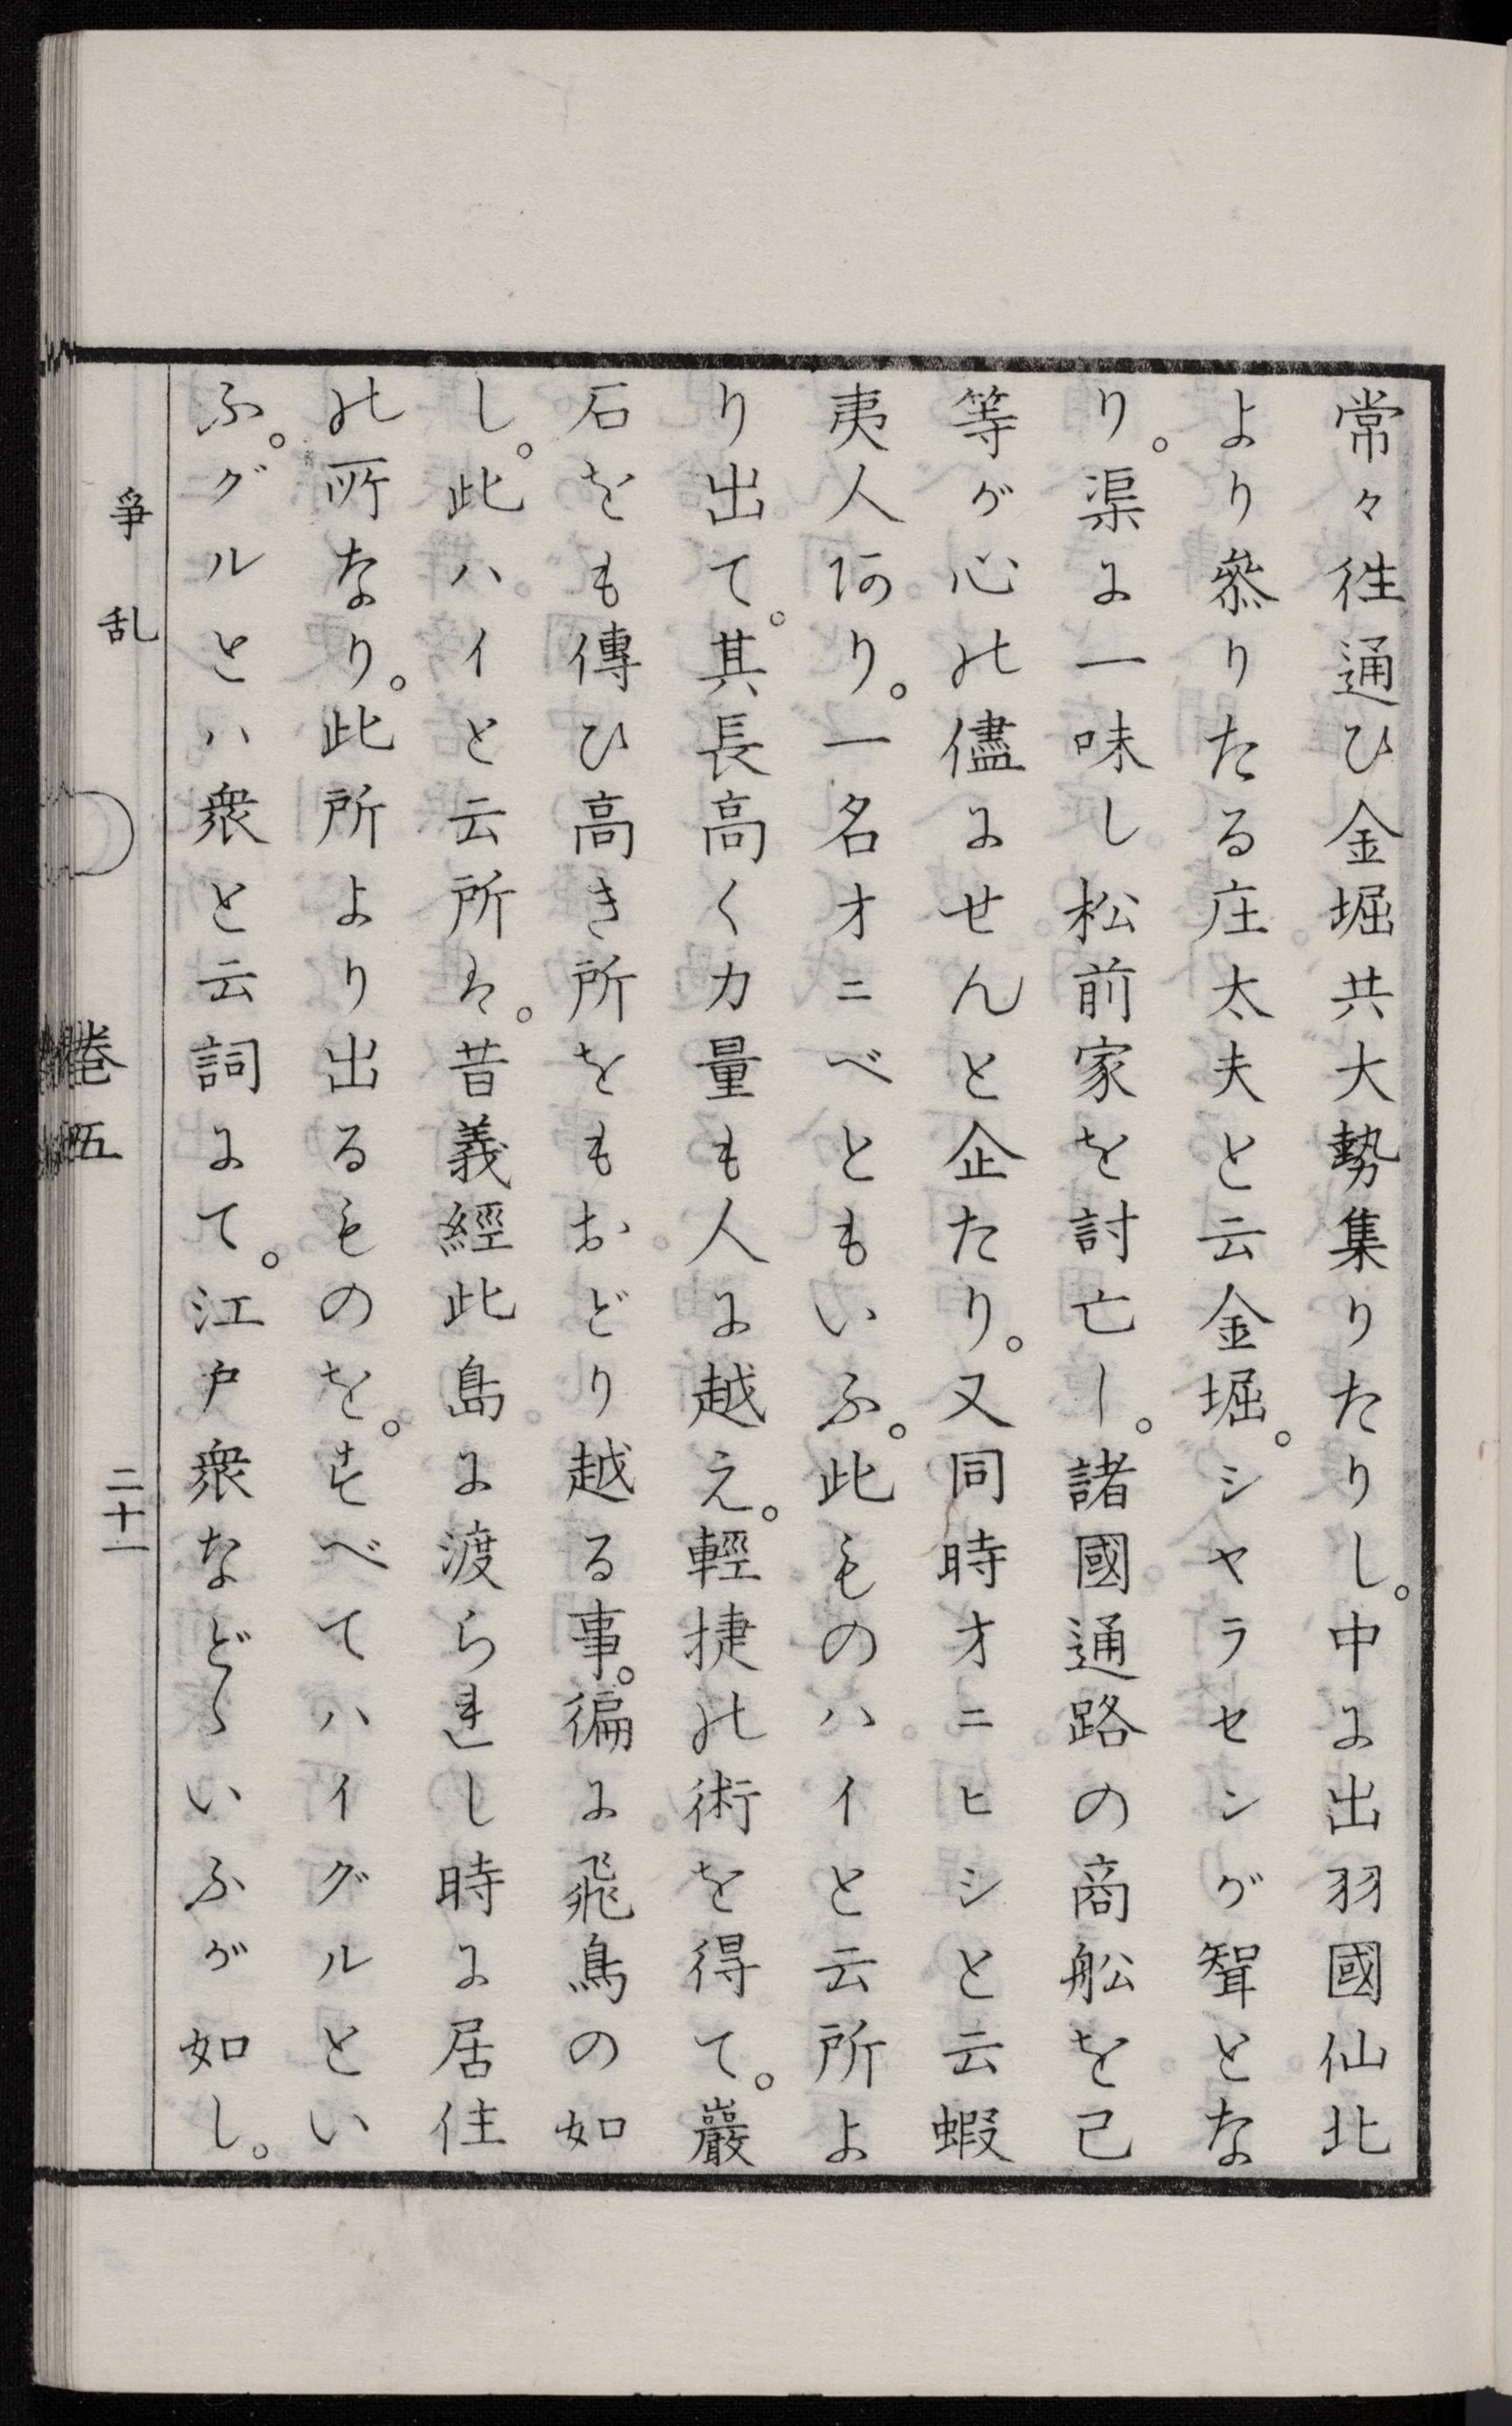 常々往通ひ金堀共大勢集りたりし。中に出羽國仙北
より叅りたる庄太夫と云金堀。シヤラセンが聟とな
り。渠に一味し松前家を討亡し。諸國通路の商舩を己
等が心の儘にせんと企たり。又同時オニヒシと云蝦
夷人あり。一名オニベともいふ。此ものハイと云所よ
り出て。其長高く力量も人に越え。輕捷の術を得て。巖
石をも傳ひ高き所をもおどり越る事。徧に飛鳥の如
し。此ハイと云所は。昔義經此島に渡られし時に居住
の所なり。此所より出るものを。すべてハイグルとい
ふ。グルとハ衆と云詞にて。江戸衆などゝいふが如し。
爭乱 巻五 二十一